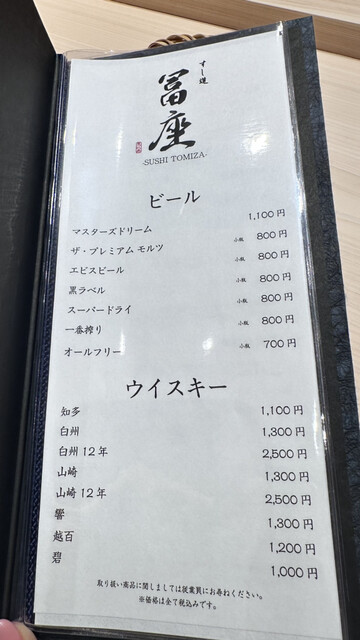 すし處
冨座
-SUSHI TOMIZA-
ビール
マスターズドリーム 1,100円
ザ・プレミアム モルツ 小瓶 800円
エビスビール 小瓶 800円
黒ラベル 小瓶 800円
スーパードライ 小瓶 800円
一番搾り 小瓶 800円
オールフリー 小瓶 700円
ウイスキー
知多 1,100円
白州 1,300円
白州 12年 2,500円
山崎 1,300円
山崎 12年 2,500円
響 1,300円
越百 1,200円
碧 1,000円
取り扱い商品に関しましては従業員にお尋ねください。
※価格は全て税込みです。